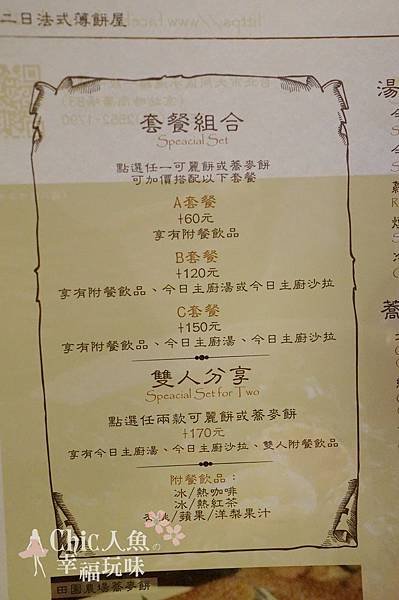 二日法式薄餅屋
套餐組合
Speacial Set
點選任一可麗餅或蕎麥餅
可加價搭配以下套餐
A套餐
+60元
享有附餐飲品
B套餐
+120元
享有附餐飲品、今日主廚湯或今日主廚沙拉
C套餐
+150元
享有附餐飲品、今日主廚湯、今日主廚沙拉
雙人分享
Speacial Set for Two
點選任兩款可麗餅或蕎麥餅
+170元
享有今日主廚湯、今日主廚沙拉、雙人附餐飲品
附餐飲品：
冰/熱咖啡
冰/熱紅茶
/蘋果/洋梨果汁
Chic人魚の
幸福玩味
田園農場蕎麥餅
湯
蕎